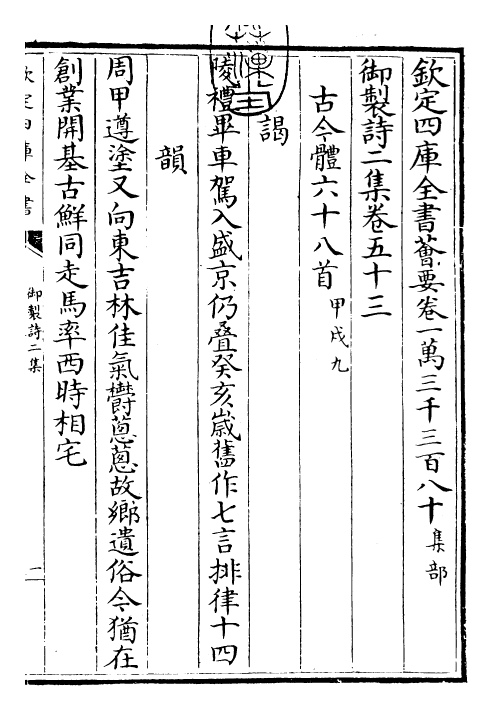 欽定四庫全書薈要卷一萬三千三百八十集部
御製詩二集卷五十三
古今體六十八首甲戌九
謁
陵禮畢車駕入盛京仍疊癸亥歲舊作七言排律十四
韻
周甲遵塗又向東吉林佳氣欝蔥蔥故鄉遺俗今猶在
創業開基古鮮同走馬率西時相宅
欽定四庫全書
御製詩二集